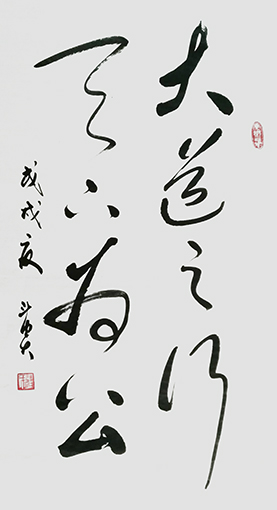 大道之行
天下为公
戊戌夏